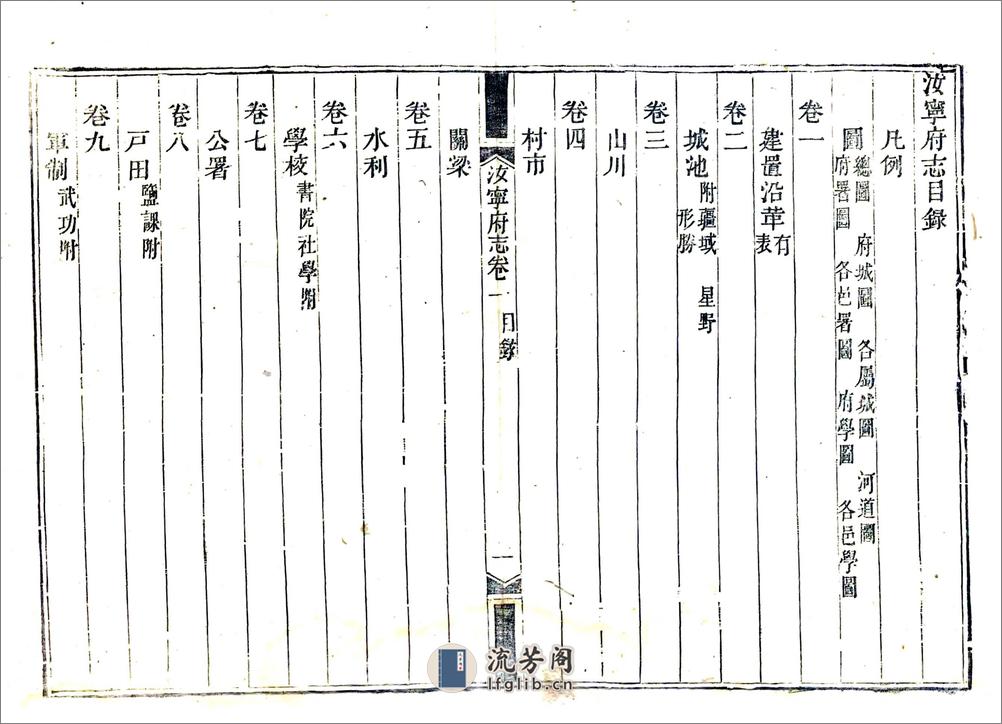 汝寧府志目錄
凡例
圖 總圖 府城圖 各屬城圖 河道圖
府署圖 各邑署圖 府學圖 各邑學圖
卷一
建置沿革 有表
卷二
城池 附疆域 形勝 星野
卷三
山川
卷四
村市
汝寧府志卷一 目錄 一
關梁
卷五
水利
卷六
學校 書院社學附
卷七
公署
卷八
戸田 鹽課附
卷九
軍制 武功附
流芳阁
lfglib.cn